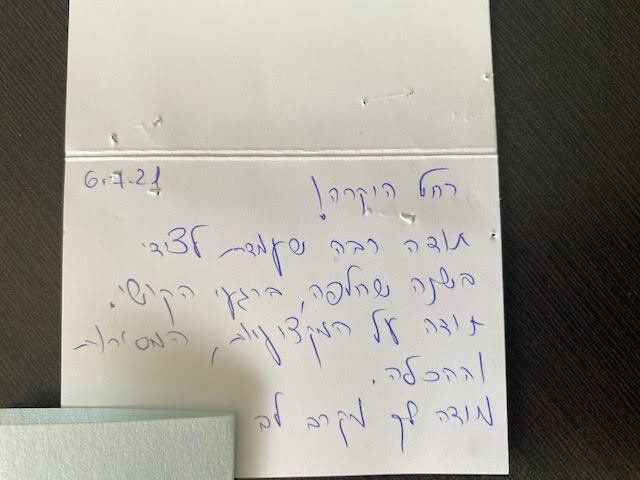 6.7.21
רחל היקרה!
תודה רבה שעמדת לצידי
בשנה שחלפה, ברגעי הקושי.
תודה על המקצועיות, המסירות
וההכלה.
מודה לך מקרב לב